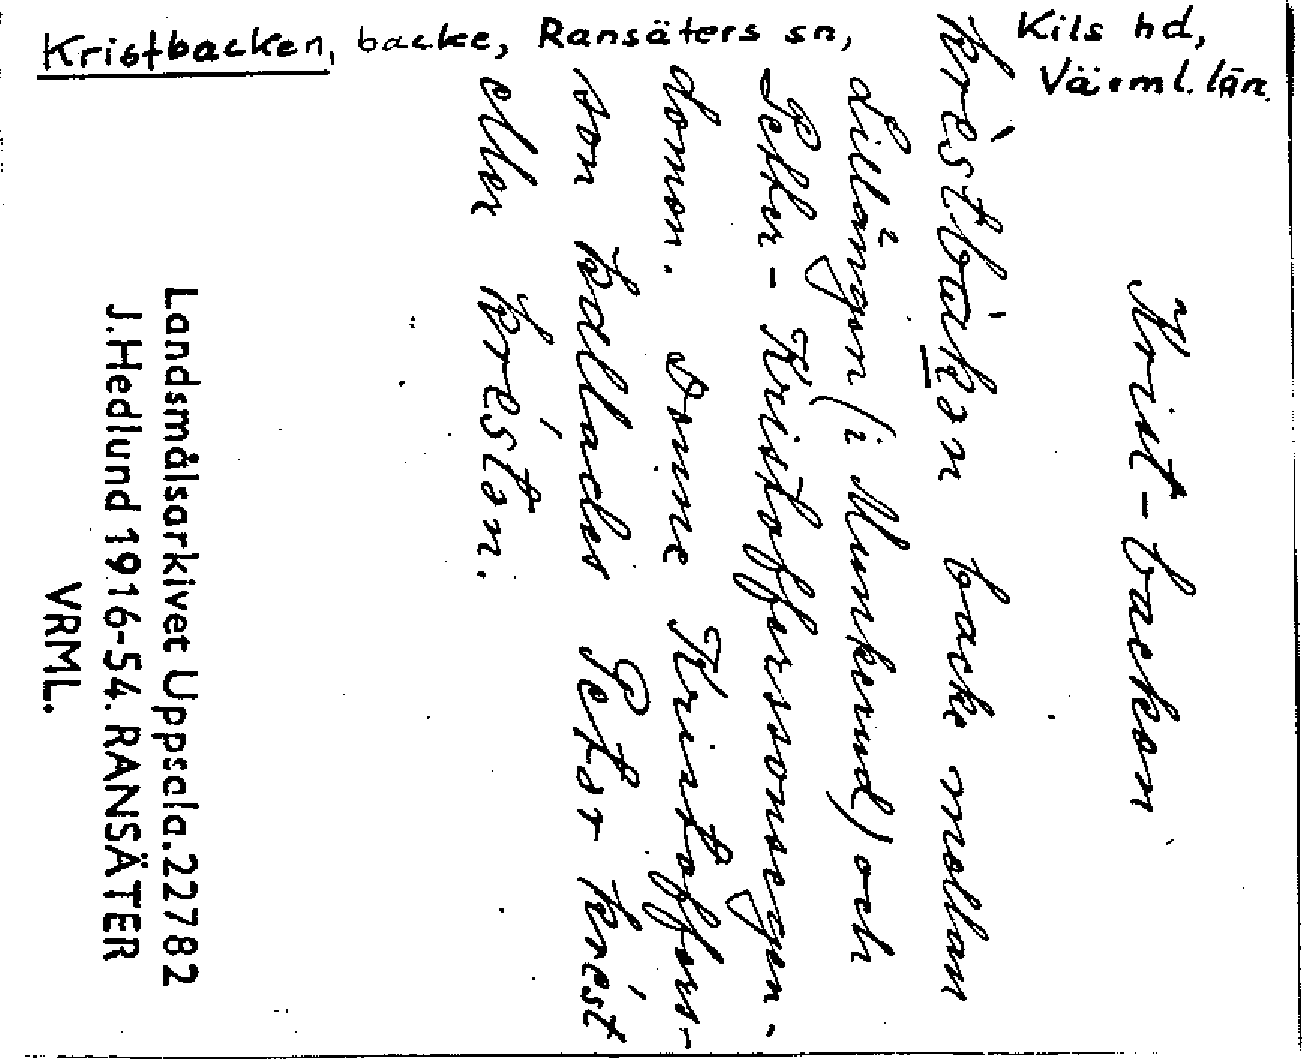 Kristbacken, backe, Ransäters sn, Kils hd,
Värml. län.
Krist-backen
krèstbàkən backe mellan
Lillängen (i Munkerud) och
Petter-Kristofferssonsegen-
domen. Denne Kristoffers-
son kallades Petər krést
eller kréstən.
Landsmålsarkivet Uppsala. 22782
J. Hedlund 1916-54. RANSÄTER
VRML.